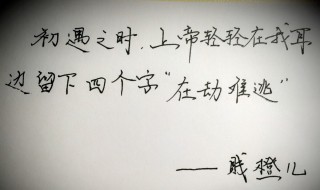 初遇之时，上帝轻轻在我耳
边留下四个字“在劫难逃”
——戝橙儿